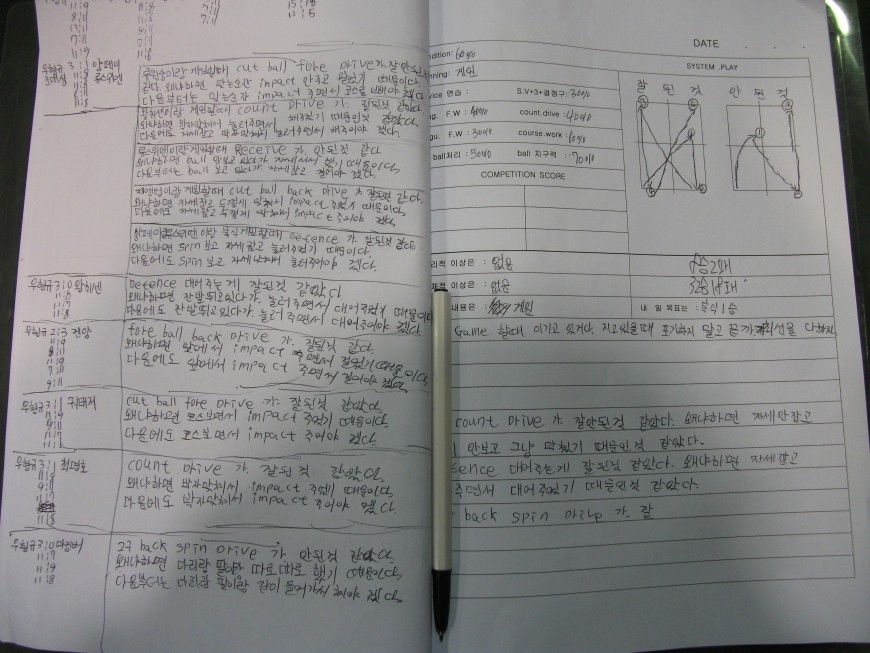 15:13
11:5
11:8
13:11
11:9
11:6
우형규 3:1
조대성
린윤정이랑 게임할때 cut ball fore Drive가 잘안된것
같다 왜냐하면 맞는순간 impact 안주고 쳤기 때문이다
다음부터는 맞는순간 impact 주면서 코스로 빼야 겠다
왕최선이랑 게임할때 count Drive 가 잘된것 같다
왜냐하면 박자맞춰서 눌러주면서 채주었기 때문인것 같다.
다음에도 자세잡고 박자맞춰서 눌러주면서 채주어야 겠다.
게임할때 Receive 가 안된것 같다
왜냐하면 ball 안보고 있다가 자세서서 했기 때문이다
다음부터는 ball 보고 있다가 자세잡고 걸어야 겠다.
게임할때 cut ball back Drive 가 잘된것 같다.
왜냐하면 자세잡고 두껍게 맞춰서 impact 주었기 때문이다
다음에도 자세잡고 두껍게 맞춰서 impact 주어야 겠다
복식게임할때 De-cence 가 잘된것 같다
왜냐하면 spin 보고 자세잡고 눌러주었기 때문이다
다음에도 spin 보고 자세맞춰서 눌러주어야 겠다.
우형규 3:0 왕최선
11:6
11:7
11:8
Defence 대어주는게 잘된것 같았다
왜냐하면 잔발뛰고있다가 눌러주면서 대어주었기 때문이다
다음에도 잔발뛰고있다가 눌러주면서 대어주어야 겠다
우형규 2:3 전양
11:9
9:11
fore ball back Drive 가 잘된것 같다.
왜냐하면 앞에서 impact 주면서 걸었기 때문이다.
다음에도 앞에서 impact 주면서 걸어야 겠다.
우형규 3:1 궈태저
11:9
9:11
11:7
cut ball fore Drive 가 잘된것 같았다.
왜냐하면 코스보면서 impact 주었기 때문이다
다음에도 코스보면서 impact 주어야 겠다.
우형규 3:1 최명호
11:8
9:11
11:7
11:8
count Drive 가 잘된것 같았다.
왜냐하면 박자맞춰서 impact 주었기 때문이다
다음에도 박자맞춰서 impact 주어야 겠다.
우형규 3:0 다칭버
11:7
11:9
11:8
2구 back spin Drive 가 안된것 같았다.
왜냐하면 다리랑 팔이랑 따로따로 했기 때문이다
다음부터는 다리랑 팔이랑 같이 들어가서 쳐야 겠다.
DATE . . .
ndition: 60%
SYSTEM PLAY
nning: 게임
잘 된 것
안 된 것
vice 연습 :
S.V+3+결정구: 30%
F.W : 40%
count.drive : 40%
F.W : 30%
course.work : 60%
ball처리 : 50%
ball 지구력 : 70%
COMPETITION SCORE
리적 이상은 : 없음
1승2패
체적 이상은 : 없음
내용은 : 게임
내 일 목표는 : 복식 1승
Game 할때 이기고 있거나, 지고있을때 포기하지 말고 끝까지 최선을 다하자.
count Drive 가 잘안된것 같았다. 왜냐하면 자세안잡고
안보고 그냥 막쳤기 때문인것 같았다.
efence 대어주는게 잘된것 같았다. 왜냐하면 자세잡고
주면서 대어주었기 때문인것 같았다.
back spin Drive 가 잘